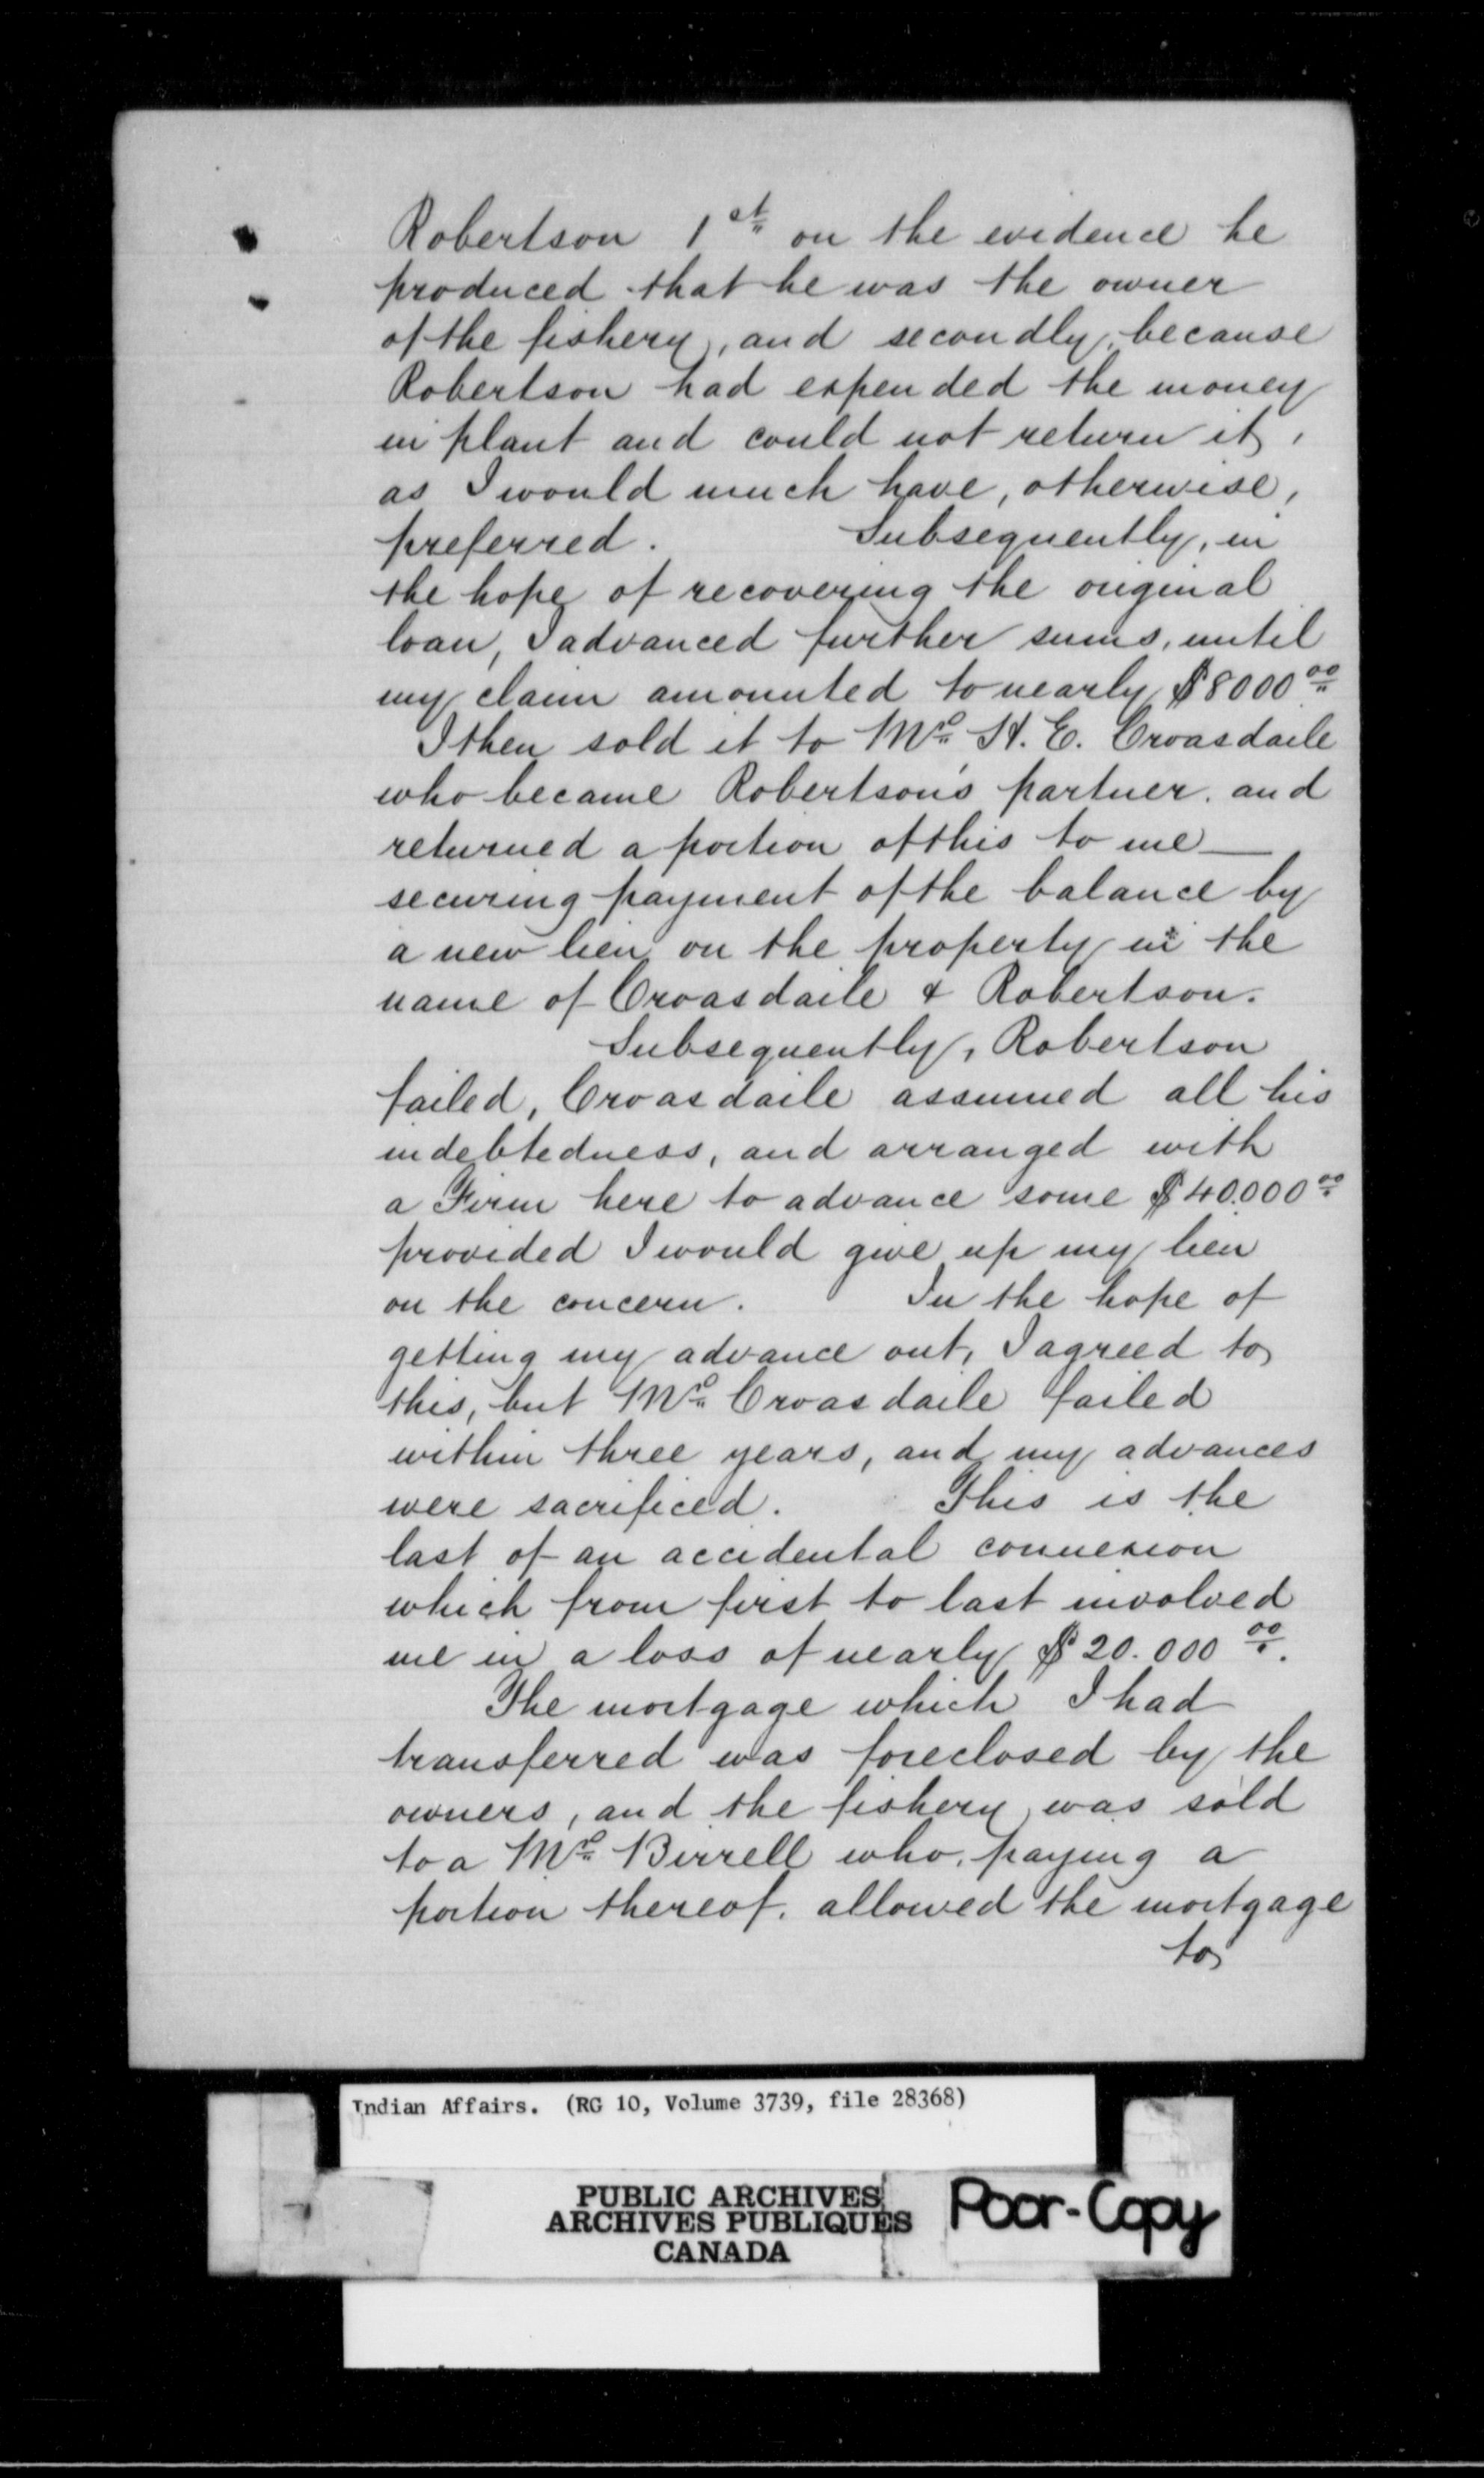 Robertson 1st on the evidence he
produced that he was the owner
of the fishery, and secondly, because
Robertson had expended the money
in plant and could not return it,
as I would much have, otherwise,
preferred. Subsequently, in
the hope of recovering the original
loan, I advanced further sums, until
my claim amounted to nearly $8000 00
I then sold it to Mr H. E. Croasdaile
who became Robertson's partner. and
returned a portion of this to me —
securing payment of the balance by
a new lien on the property in the
name of Croasdaile & Robertson.
Subsequently, Robertson
failed, Croasdaile assumed all his
indebtedness, and arranged with
a Firm here to advance some $40.000 00
provided I would give up my lien
on the concern. In the hope of
getting my advance out, I agreed to
this, but Mr Croasdaile failed
within three years, and my advances
were sacrificed. This is the
last of an accidental connexion
which from first to last involved
me in a loss of nearly $20.000 00.
The mortgage which I had
transferred was foreclosed by the
owners, and the fishery was sold
to a Mr Birrell who, paying a
portion thereof. allowed the mortgage
to
Indian Affairs. (RG 10, Volume 3739, file 28368)
PUBLIC ARCHIVES
ARCHIVES PUBLIQUES
CANADA
Poor-Copy